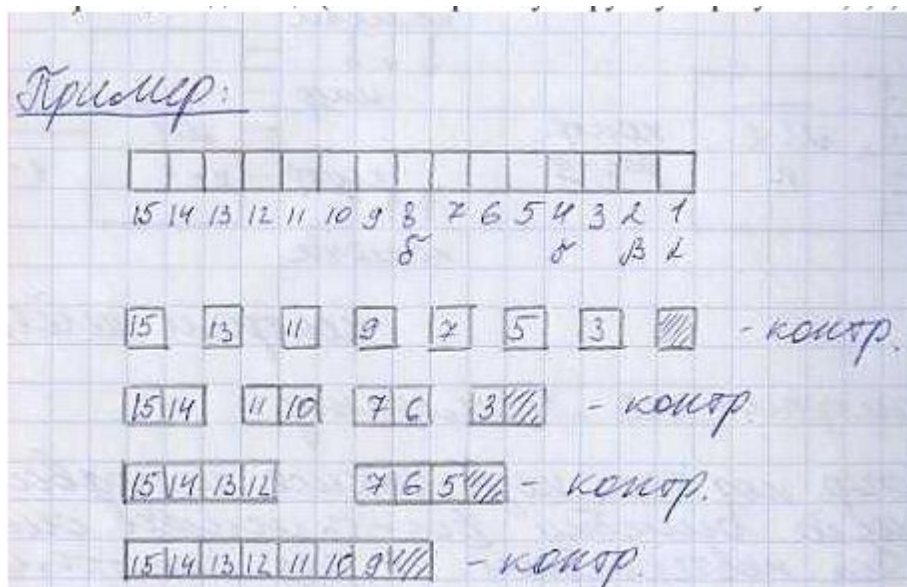 Пример:
15 14 13 12 11 10 9 8 7 6 5 4 3 2 1
δ γ β α
15 13 11 9 7 5 3 - контр.
15 14 11 10 7 6 3 - контр.
15 14 13 12 7 6 5 - контр.
15 14 13 12 11 10 9 - контр.